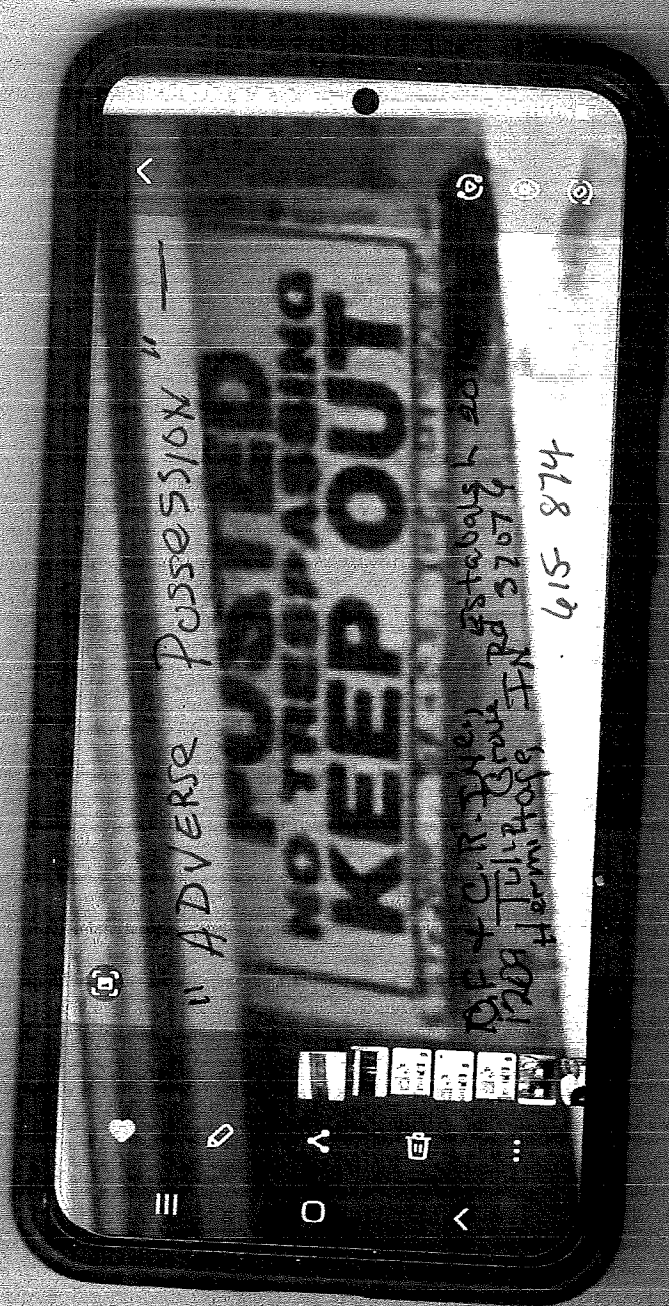 " ADVERSE POSSESSION " —
POSTED
NO TRESPASSING
KEEP OUT
& C.R. Establish
1209 Tulip Grove Rd 37076
Hermitage, TN
615 874